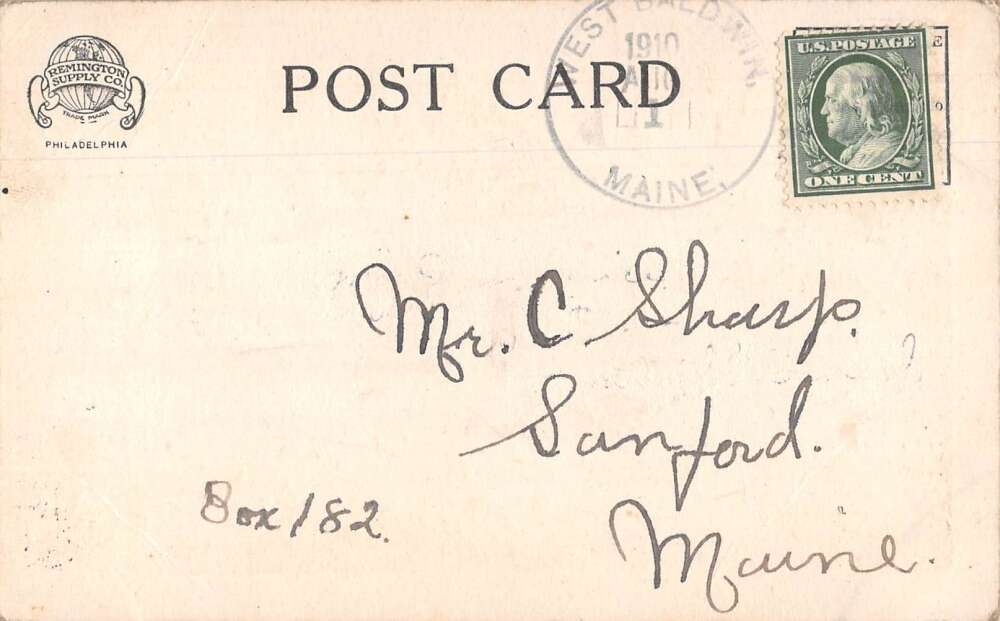 REMINGTON
SUPPLY CO.
TRADE MARK
PHILADELPHIA
POST CARD
WEST BALDWIN,
1910
1
MAINE.
U.S. POSTAGE
ONE CENT
Mr. C Sharp.
Sanford.
Box 182.
Maine.